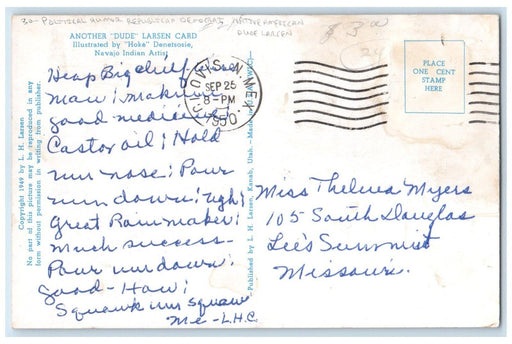 30- POLITICAL HUMOR REPUBLICAN DEMOCRAT NATIVE AMERICAN
DUDE LARSEN
$ 3.00
ANOTHER "DUDE" LARSEN CARD
Illustrated by "Hoke" Denetsosie,
Navajo Indian Artist
Heap Big chief
man! making
good medicine!
Castor oil! Hold
um nose! Pour
um down! ugh!
Great Rainmaker!
Much success-
Pour um down!
good - How!
Squawk um squaw
Me - L.H.C.
Copyright 1949 by L. H. Larsen
No part of this picture may be reproduced in any
form without permission in writing from publisher.
CLOVIS, N. MEX.
SEP 25
8-PM
1950
Published by L. H. Larsen, Kanab, Utah.
PLACE
ONE CENT
STAMP
HERE
Miss Thelma Myers
105 South Douglas
Lee's Summit
Missouri.